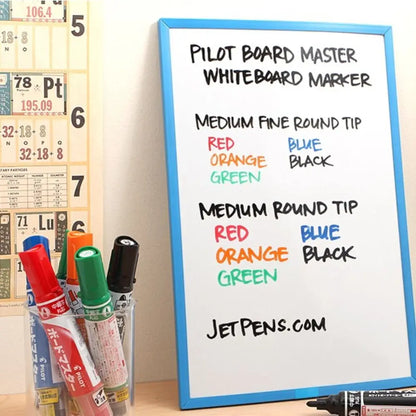 PILOT BOARD MASTER
WHITEBOARD MARKER
MEDIUM FINE ROUND TIP
RED BLUE
ORANGE BLACK
GREEN
MEDIUM ROUND TIP
RED BLUE
ORANGE BLACK
GREEN
JETPENS.COM
5
18·8
78 Pt
195.09
6
32·18·8
32·18·8
7
71 Lu
ボードマスター
PILOT